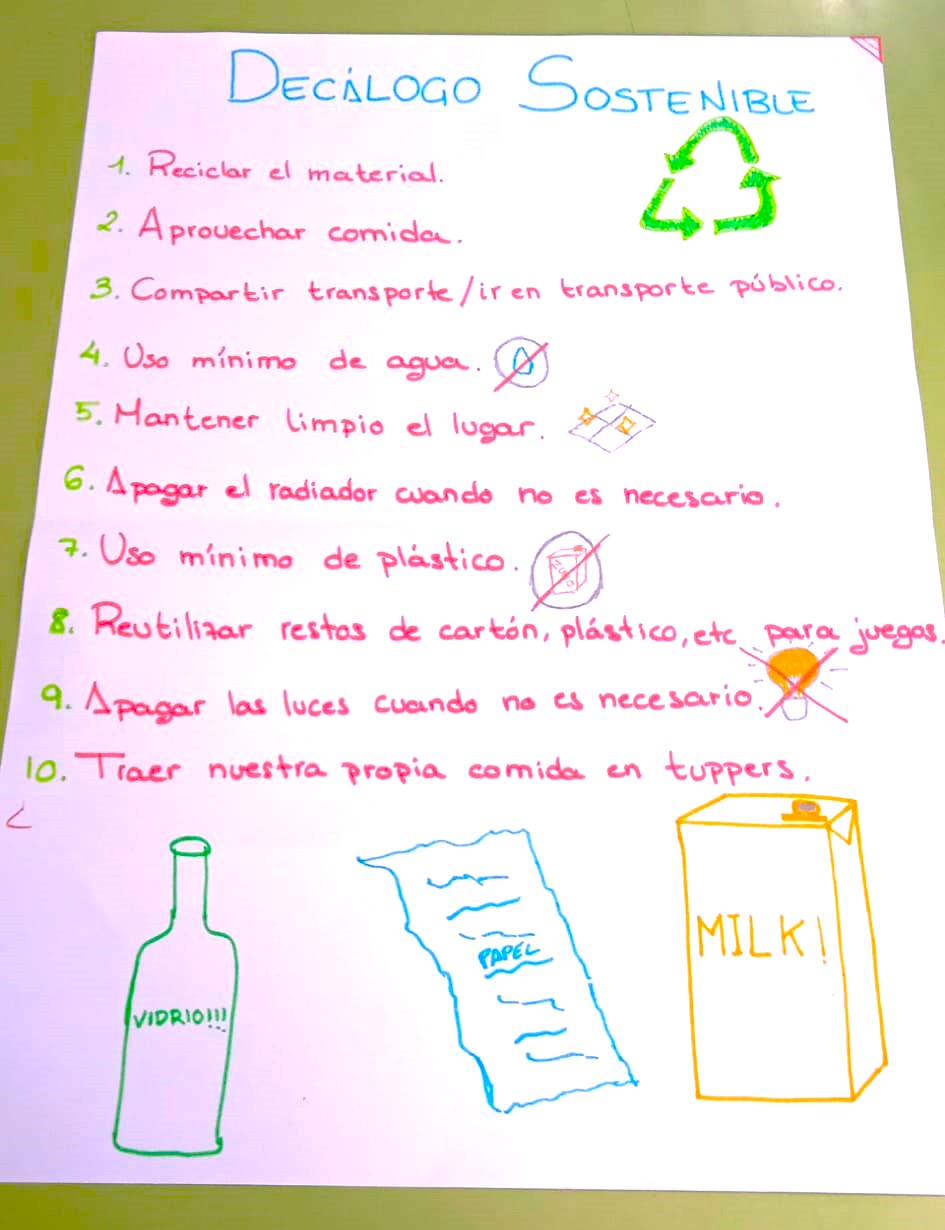 DECÁLOGO SOSTENIBLE
1. Reciclar el material.
2. Aprovechar comida.
3. Compartir transporte/ir en transporte público.
4. Uso mínimo de agua.
5. Mantener limpio el lugar.
6. Apagar el radiador cuando no es necesario.
7. Uso mínimo de plástico.
8. Reutilizar restos de cartón, plástico, etc para juegos.
9. Apagar las luces cuando no es necesario.
10. Traer nuestra propia comida en tuppers.
VIDRIO!!!
PAPEL
MILK!